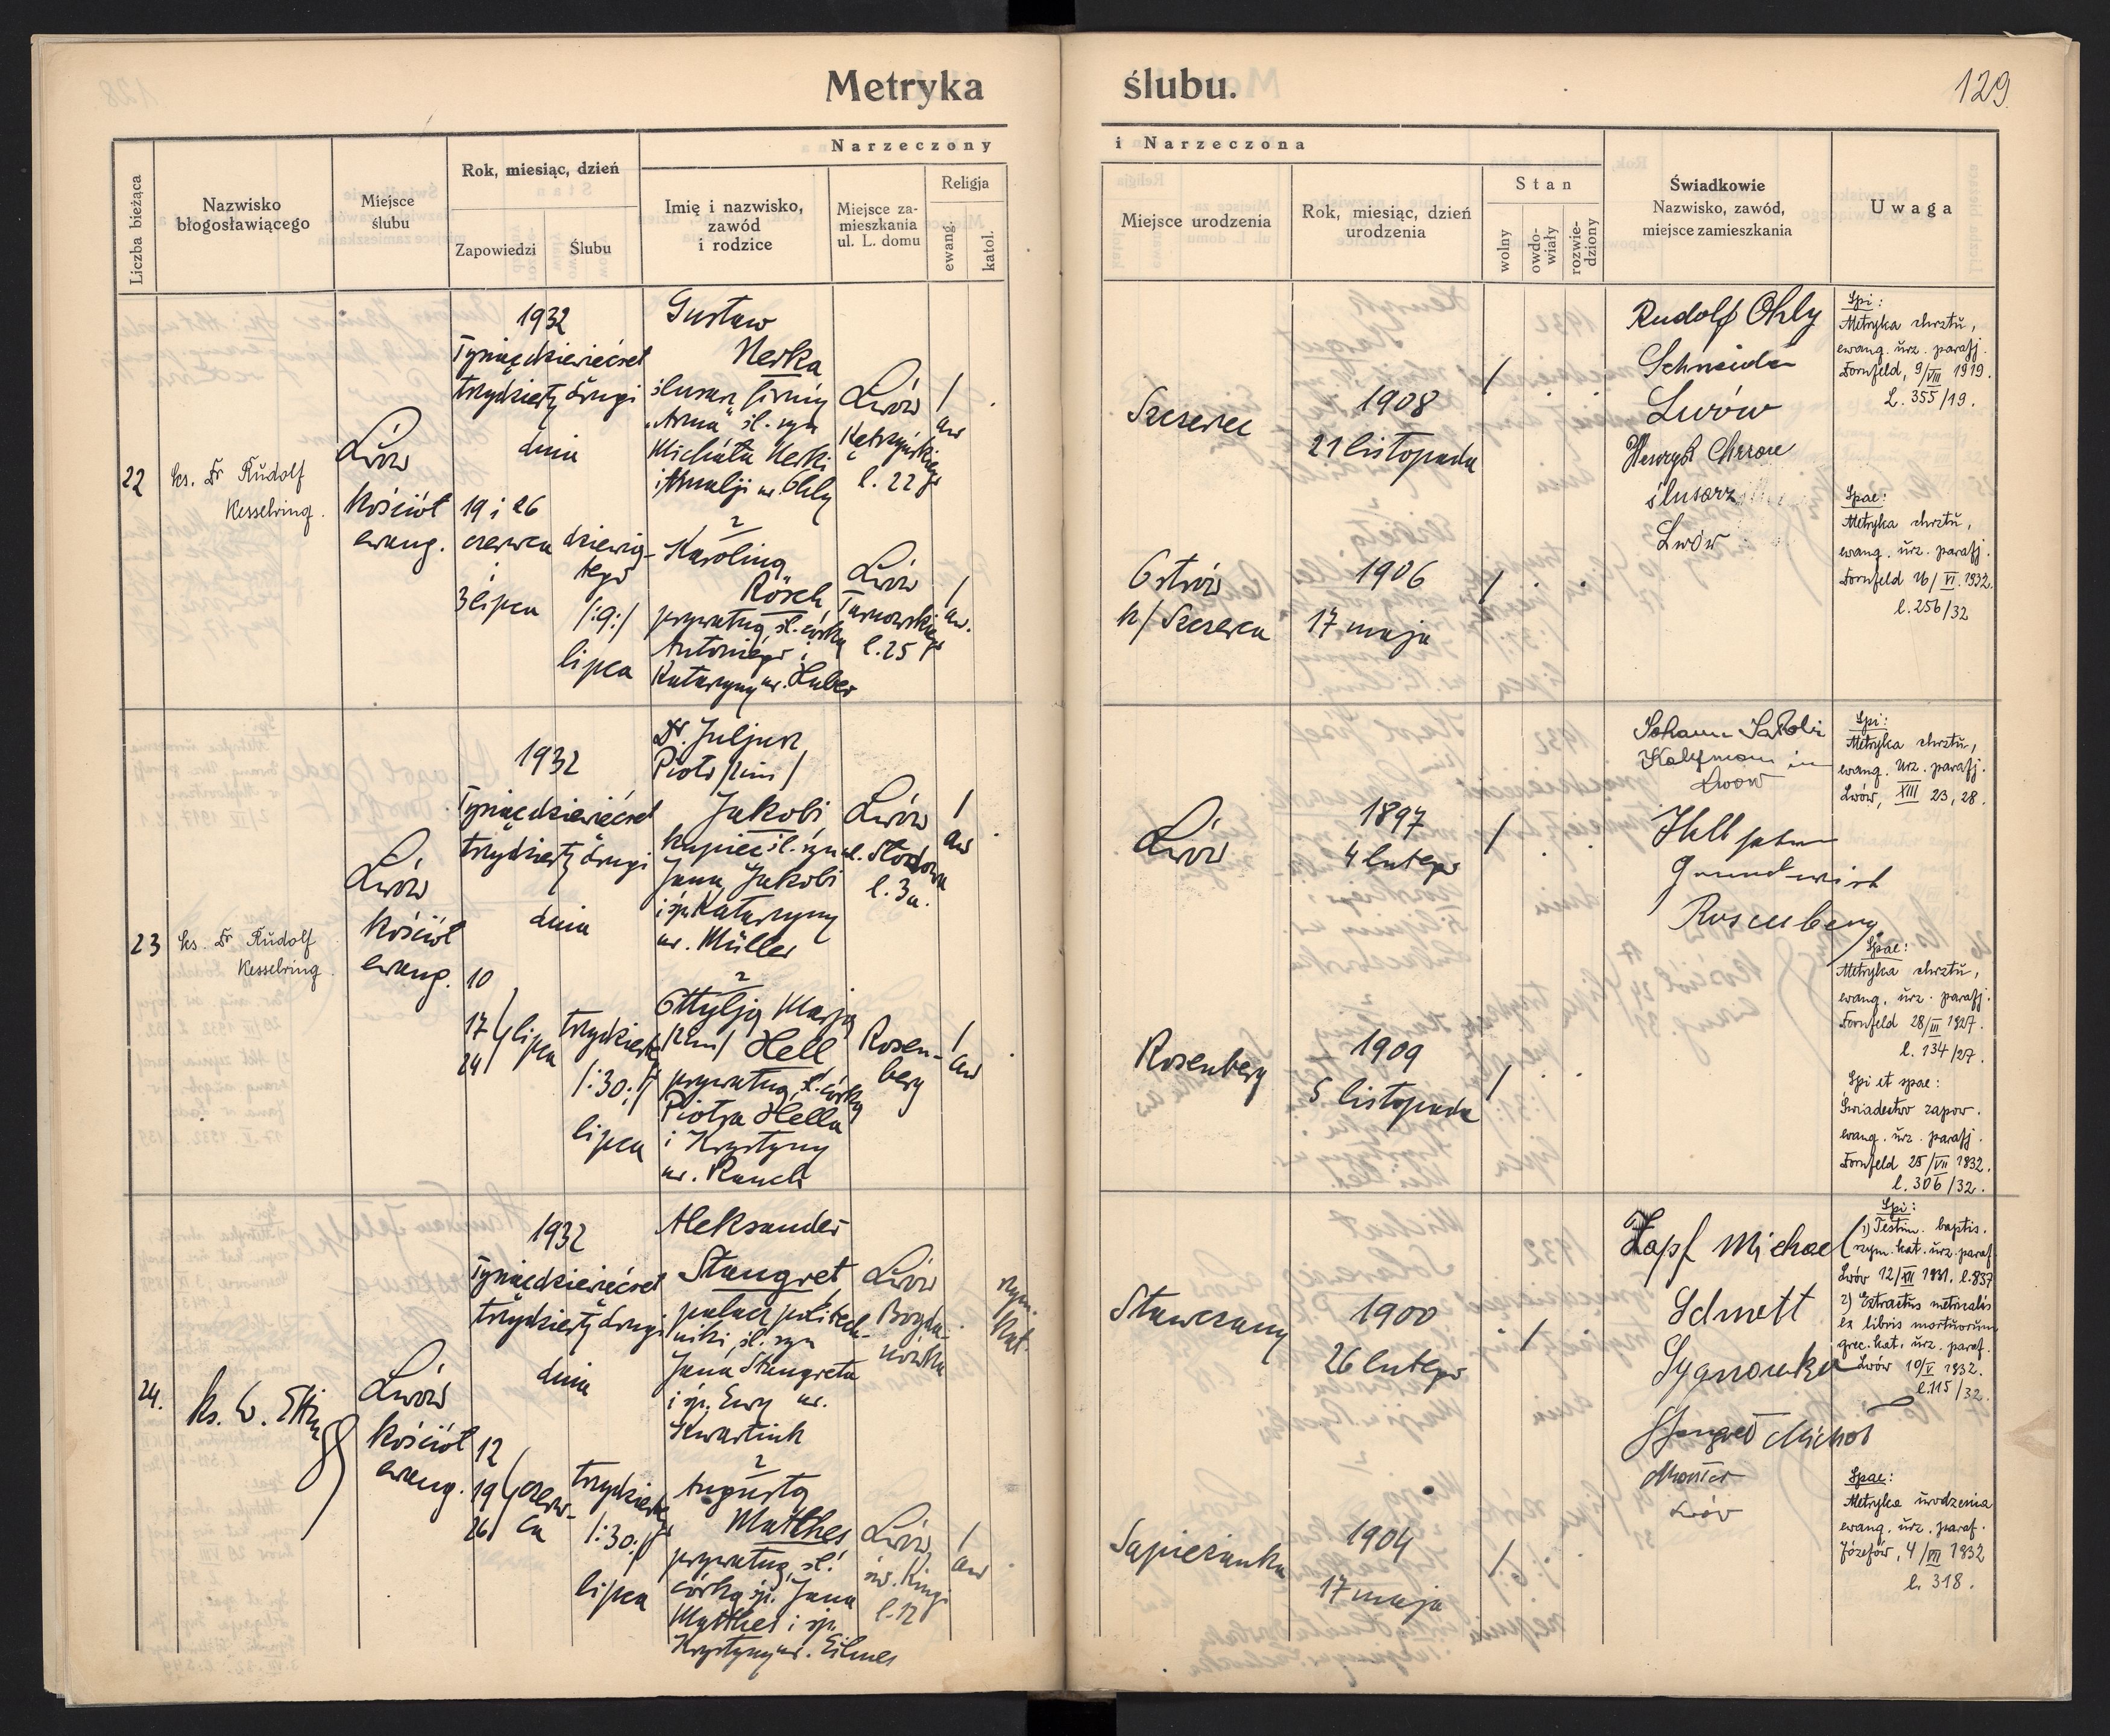 Metryka ślubu.
129
Liczba bieżąca
Nazwisko
błogosławiącego
Miejsce
ślubu
Rok, miesiąc, dzień
Zapowiedzi
Ślubu
Narzeczony
Imię i nazwisko,
zawód
i rodzice
Miejsce za-
mieszkania
ul. L. domu
Religja
ewang.
katol.
i Narzeczona
Miejsce urodzenia
Rok, miesiąc, dzień
urodzenia
Stan
wolny
owdo-
wiały
rozwie-
dziony
Świadkowie
Nazwisko, zawód,
miejsce zamieszkania
Uwaga
22
ks. Dr Rudolf
Kesselring.
Lwów
kościół
ewang.
1932
tysiąc dziewięćset
trzydziesty drugi
dnia
19 i 26
czerwca
i
3 lipca
dziewią-
tego
/:9:/
lipca
Gustaw
Herka
ślusarz firmy
„Arma" śl. syn
Michała Herki
i Amalji ur. Ohly
z
Karoliną
Rösch,
prywatną, śl. córką
Antoniego i
Katarzyny ur. Huber
Lwów
Kętrzyńskiego
l. 22
Lwów
Tarnowskiego
l. 25
/
aw
/
aw.
Szczerzec
1908
21 listopada
/
Ostrów
k/ Szczerca
1906
17 maja
/
Rudolf Ohly
Schneider
Lwów
Henryk
ślusarz
Lwów
Spi:
Metryka chrztu,
ewang. urz. parafj.
Dornfeld, 9/VIII 1919.
L. 355/19.
Spae:
Metryka chrztu,
ewang. urz. parafj.
Dornfeld 16/VI. 1932.
l. 256/32
23
ks. Dr Rudolf
Kesselring
Lwów
kościół
ewang.
1932
tysiąc dziewięćset
trzydziesty drugi
dnia
10
17
24
lipca
trzydziestego
/:30:/
lipca
Dr. Juljusz
Piotr /2 im/
Jakobi
kupiec śl. syn
Jana Jakobi
i śp. Katarzyny
ur. Müller
z
Ottylją Marją
/2 im/ Hell
prywatną, śl. córką
Piotra Hella
i Krystyny
ur. Rauch
Lwów
l. 3a.
Rosen-
berg
/
aw
/
aw
Lwów
1897
4 lutego
/
Rosenberg
1909
5 listopada
/
Johann Jakobi
Kaufmann in
Lwow
Hell
Rosenberg
Spi:
Metryka chrztu,
ewang. urz. parafj.
Lwów, XIII 23, 28.
Spae:
Metryka chrztu,
ewang. urz. parafj.
Dornfeld 28/III 1927.
l. 134/27.
Spi et spae:
Świadectwo zapow.
ewang. urz. parafj.
Dornfeld 25/VII 1932.
l. 306/32.
24.
ks. W.
Lwów
kościół
ewang.
1932
tysiąc dziewięćset
trzydziesty drugi
dnia
12
19
26
czerw-
ca
trzydziestego
/:30:/
lipca
Aleksander
Stangret
palacz politech-
niki, śl. syn
Jana Stangreta
i śp. Ewy ur.
Kwartink
z
Augustą
Matthes
prywatną, śl.
córką śp. Jana
Matthes i śp.
Krystyny ur. Eilmes
Lwów
Bogda-
nówka
Lwów,
św. Kingi
l. 12
rzym.
kat.
/
aw
Stawczany
1900
26 lutego
/
Sapieżanka
1904
17 maja
/
Zapf Michael
Schmett
Sygnowka
Stangret Michał
Lwów
Spi:
1) Testim. baptis.
rzym. kat. urz. paraf.
Lwów 12/XII 1931. l. 837
2) Extractus metricalis
ex libris mortuorum
grec. kat. urz. paraf.
Lwów 10/V 1932.
l. 115/32.
Spae:
Metryka urodzenia
ewang. urz. paraf.
Józefów, 4/VII 1932
l. 318.